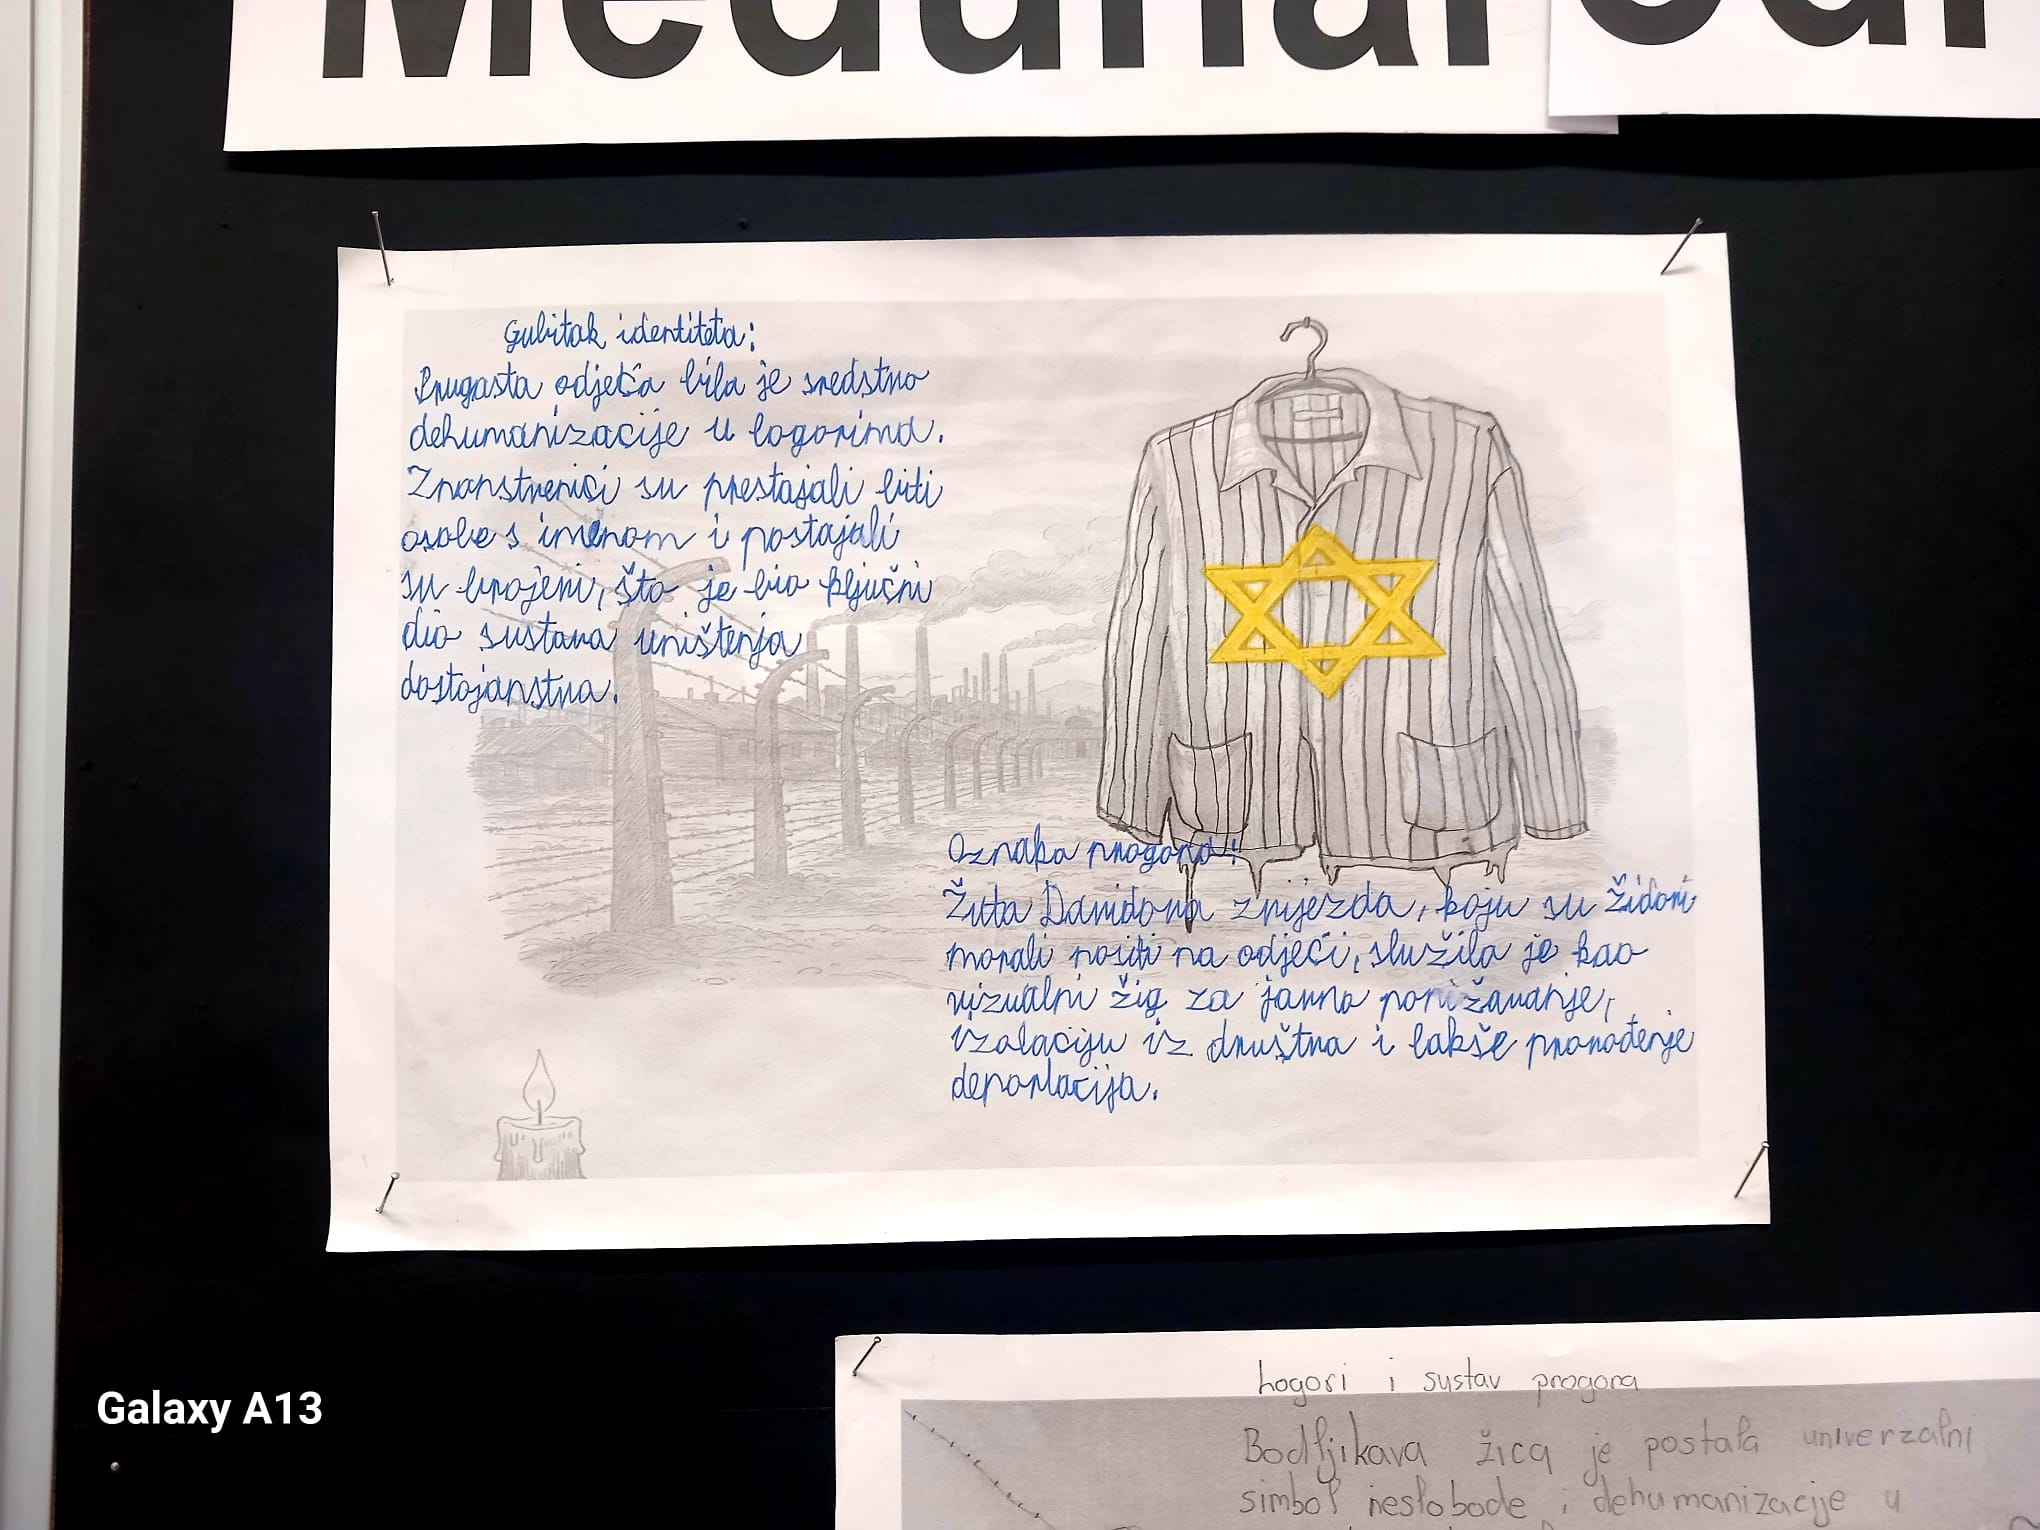 Međunarodn
Gubitak identiteta:
Prugasta odjeća bila je sredstvo
dehumanizacije u logorima.
Znanstvenici su prestajali biti
osobe s imenom i postajali
su brojeni, što je bio ključni
dio sustava uništenja
dostojanstva.
Oznaka progona:
Žuta Davidova zvijezda, koju su Židovi
morali nositi na odjeći, služila je kao
vizualni žig za javno ponižavanje,
izolaciju iz društva i lakše pronođenje
deportacija.
Logori i sustav progona
Bodljikava žica je postala univerzalni
simbol neslobode i dehumanizacije u
Galaxy A13